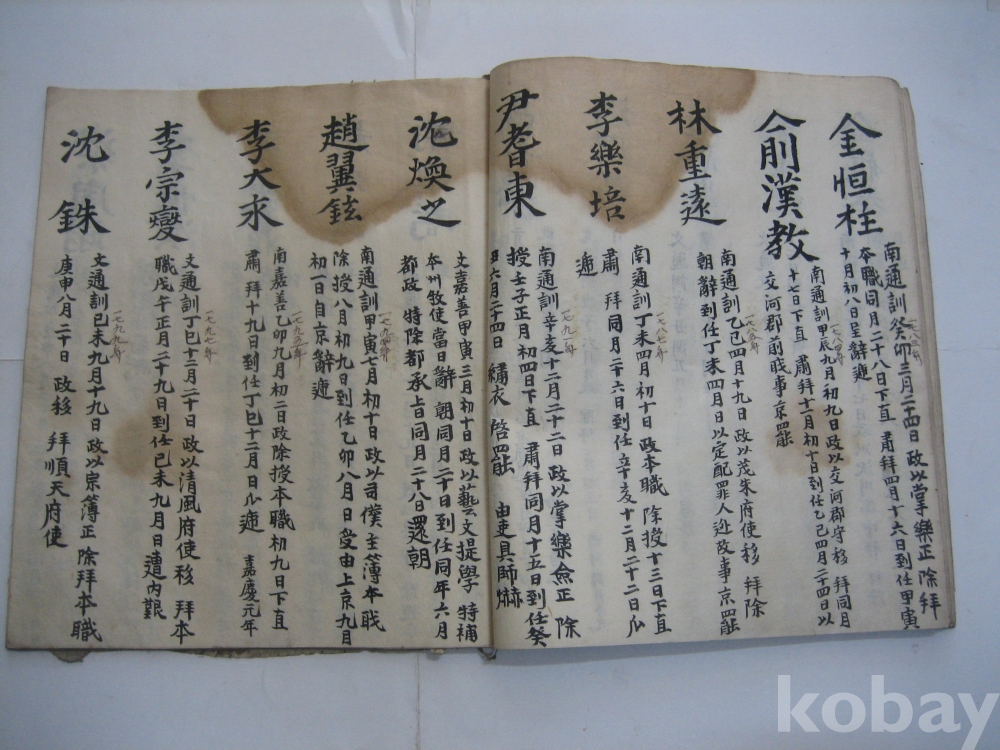 金恒柱
南通訓癸卯三月二十四日 政以掌樂正 除拜
本職同月二十八日下直 肅拜四月十六日到任甲寅
十月初八日呈辭遞
俞漢教
南通訓甲辰九月初九日政以交河郡守移 拜同月
十七日下直 肅拜十一月初十日到任乙巳四月二十四日以
交河郡前職事京罷
林重遠
南通訓乙巳四月十九日 政以茂朱府使移 拜除
朝辭到任丁未四月日以定配罪人 故事京罷
李樂培
南通訓丁未四月初十日 政本職 除授十三日下直
肅 拜同月二十六日到任辛亥十二月二十二日瓜
遞
尹耆東
南通訓辛亥十二月二十二日 政以掌樂僉正 除
授壬子正月初四日下直 肅拜同月十五日到任癸
丑六月二十四日 繡衣 啓罷 由吏具師爀
沈煥之
文嘉善甲寅三月初十日 政以藝文提學 特補
本州牧使當日辭 朝同月二十日到任同年六月
都政 特除都承旨同月二十八日還朝
趙翼鉉
南通訓甲寅七月初十日 政以司僕主簿本職
除授八月初九日到任乙卯八月日受由上京九月
初一日自京辭遞
李大永
南嘉善乙卯九月初二日政除授本職初九日下直
肅 拜十九日到任丁巳十二月日瓜遞 嘉慶元年
李宗燮
文通訓丁巳十二月二十日 政以清風府使移 拜本
職戊午正月二十九日到任己未九月日遭內艱
沈銖
文通訓己未九月十九日 政以宗簿正 除拜本職
庚申八月二十日 政移 拜順天府使
kobay